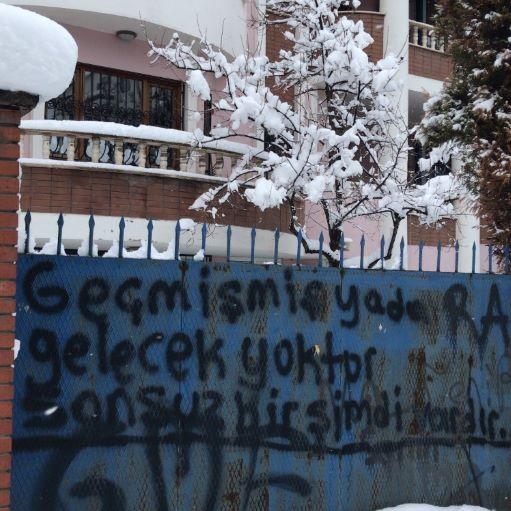 Geçmişmiş yada
gelecek yoktor
sonsuz bir şimdi vardır.